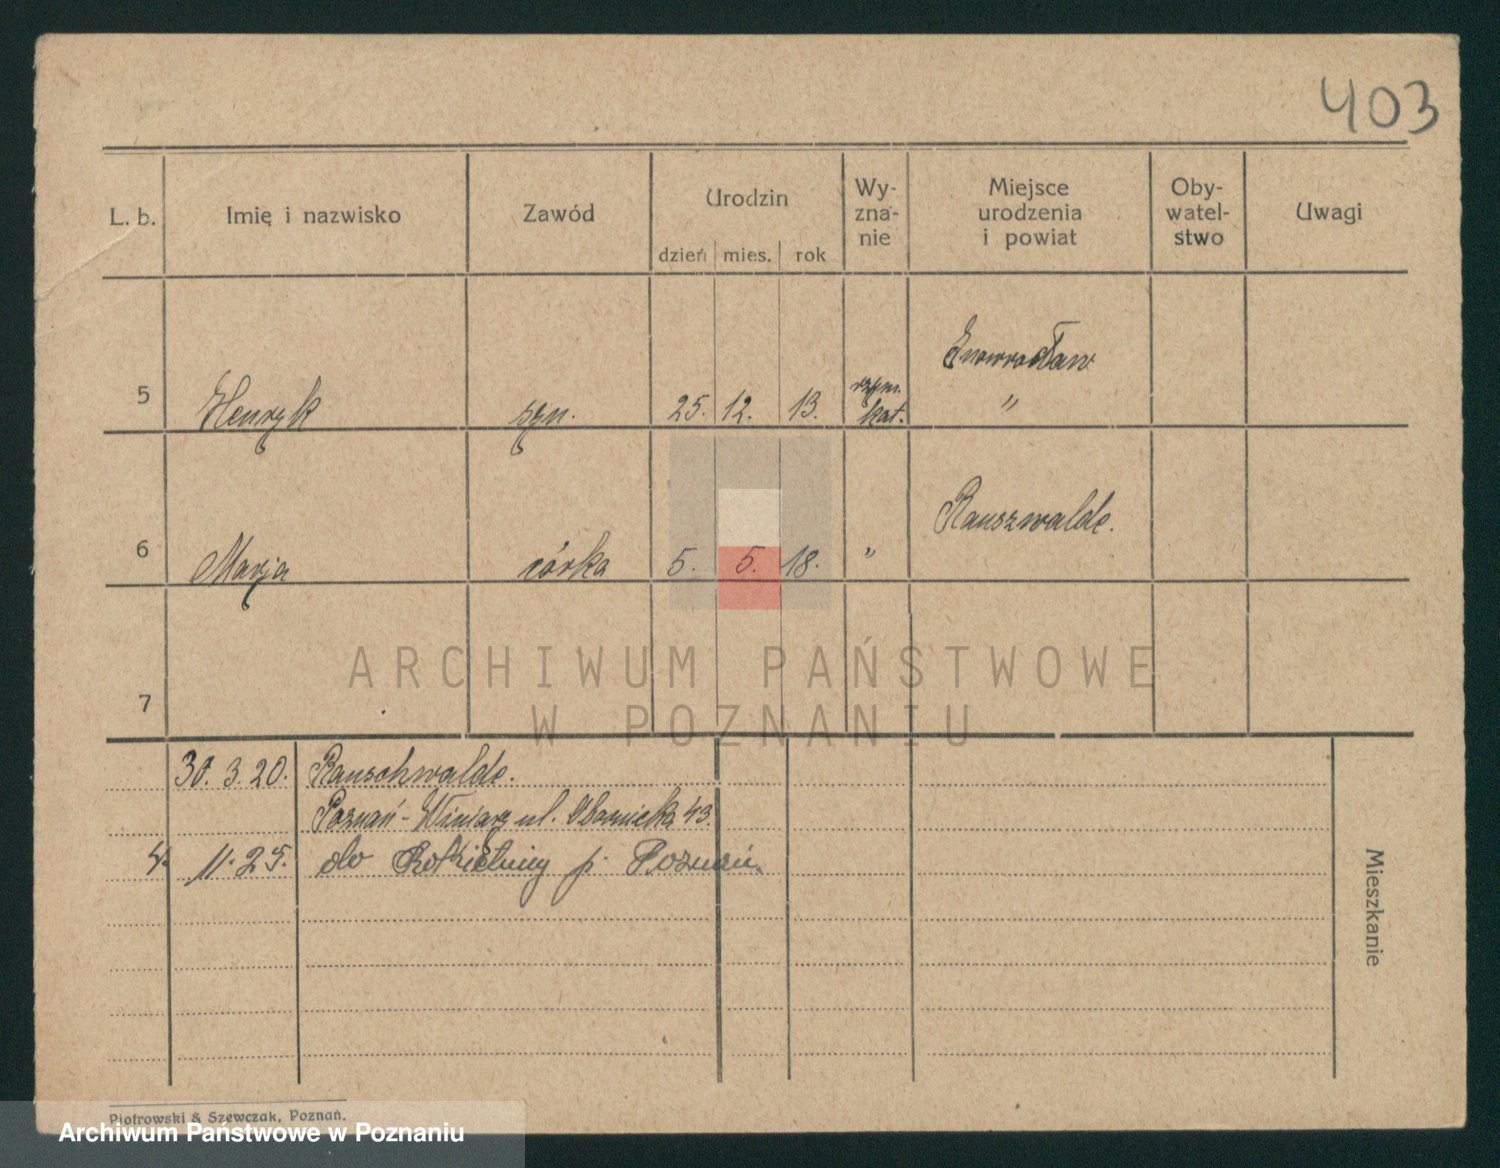 403
L. b. Imię i nazwisko Zawód Urodzin dzień mies. rok Wy-zna-nie Miejsce urodzenia i powiat Oby-watel-stwo Uwagi
Inowrocław
5 Henryk syn. 25. 12. 13. rzym. kat. "
Rauszwalde.
6 Marja córka 5. 5. 18. "
ARCHIWUM PAŃSTWOWE
7
W POZNANIU
30. 3. 20. Rauschwalde.
Poznań - Winiary ul. Obornicka 43.
4. 11. 25. do Rokietnicy p. Poznań.
Mieszkanie
Piotrowski & Szewczak, Poznań.
Archiwum Państwowe w Poznaniu